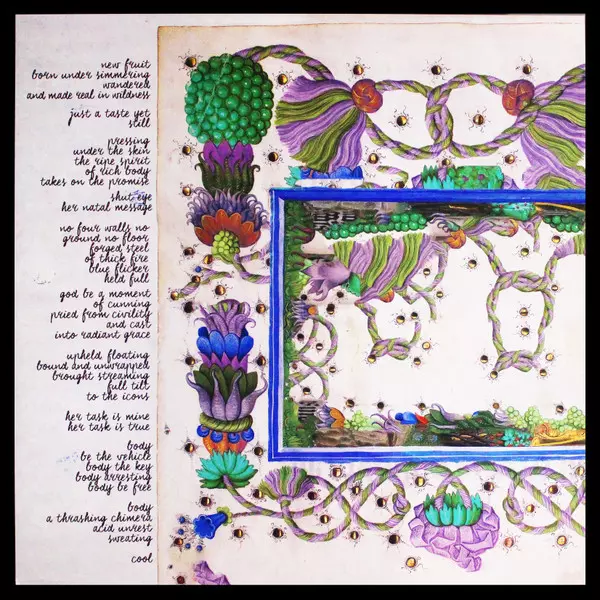 new fruit
born under simmering
wandered
and made real in wildness
just a taste yet
still
pressing
under the skin
the ripe spirit
of rich body
takes on the promise
shut-eye
her natal message
no four walls no
ground no floor
forged steel
of thick fire
blue flicker
held full
god be a moment
of cunning
pried from civility
and cast
into radiant grace
upheld floating
bound and unwrapped
brought streaming
full tilt
to the icons
her task is mine
her task is true
body
be the vehicle
body the key
body arresting
body be free
body
a thrashing chimera
acid unrest
sweating
cool